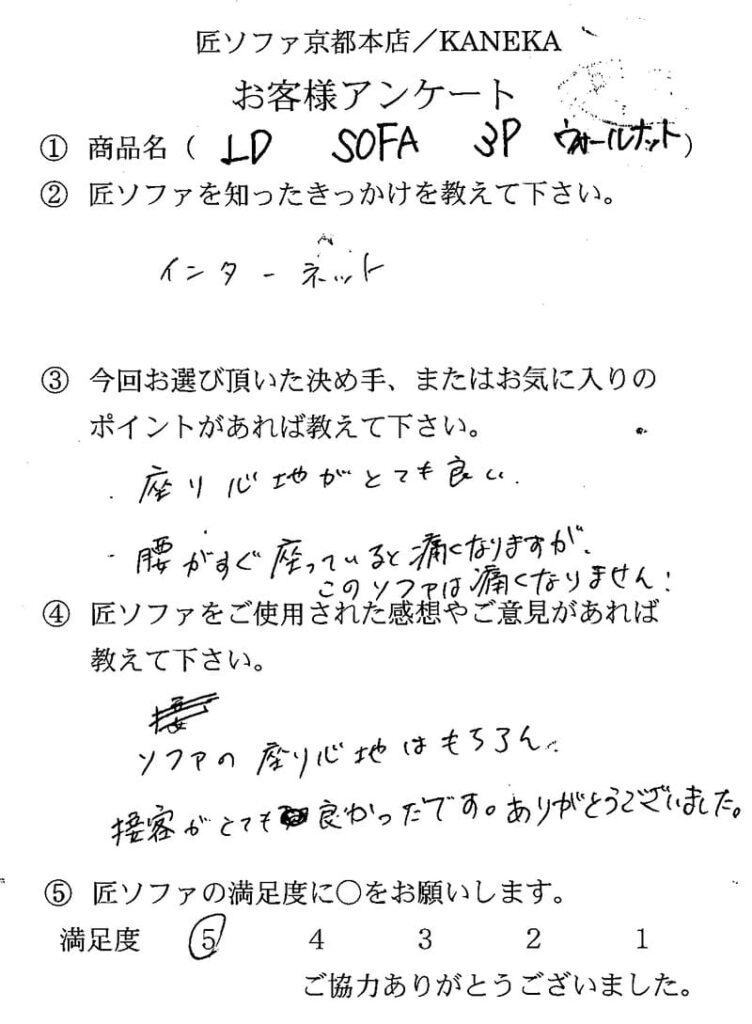 匠ソファ京都本店／KANEKA
お客様アンケート
① 商品名（ LD SOFA 3P ウォールナット）
② 匠ソファを知ったきっかけを教えて下さい。
インターネット
③ 今回お選び頂いた決め手、またはお気に入りの
ポイントがあれば教えて下さい。
・座り心地がとても良い。
・腰がすぐ座っていると痛くなりますが、
このソファは痛くなりません！
④ 匠ソファをご使用された感想やご意見があれば
教えて下さい。
ソファの座り心地はもちろん、
接客がとても良かったです。ありがとうございました。
⑤ 匠ソファの満足度に○をお願いします。
満足度 5 4 3 2 1
ご協力ありがとうございました。